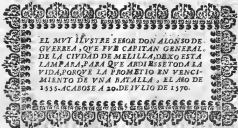 EL MVY ILVSTRE SEÑOR DON ALONSO DE
GVERREA, QVE FVE CAPITAN GENERAL,
DE LA CIVDAD DE MELILLA, DEXO ESTA
LAMPARA, PARA QVE ARDIESE TODA LA
VIDA, PORQVE LA PROMETIO EN VENCI-
MIENTO DE VNA BATALLA, EL AÑO DE
1555. ACABOSE A 20. DE IVLIO DE 1570.